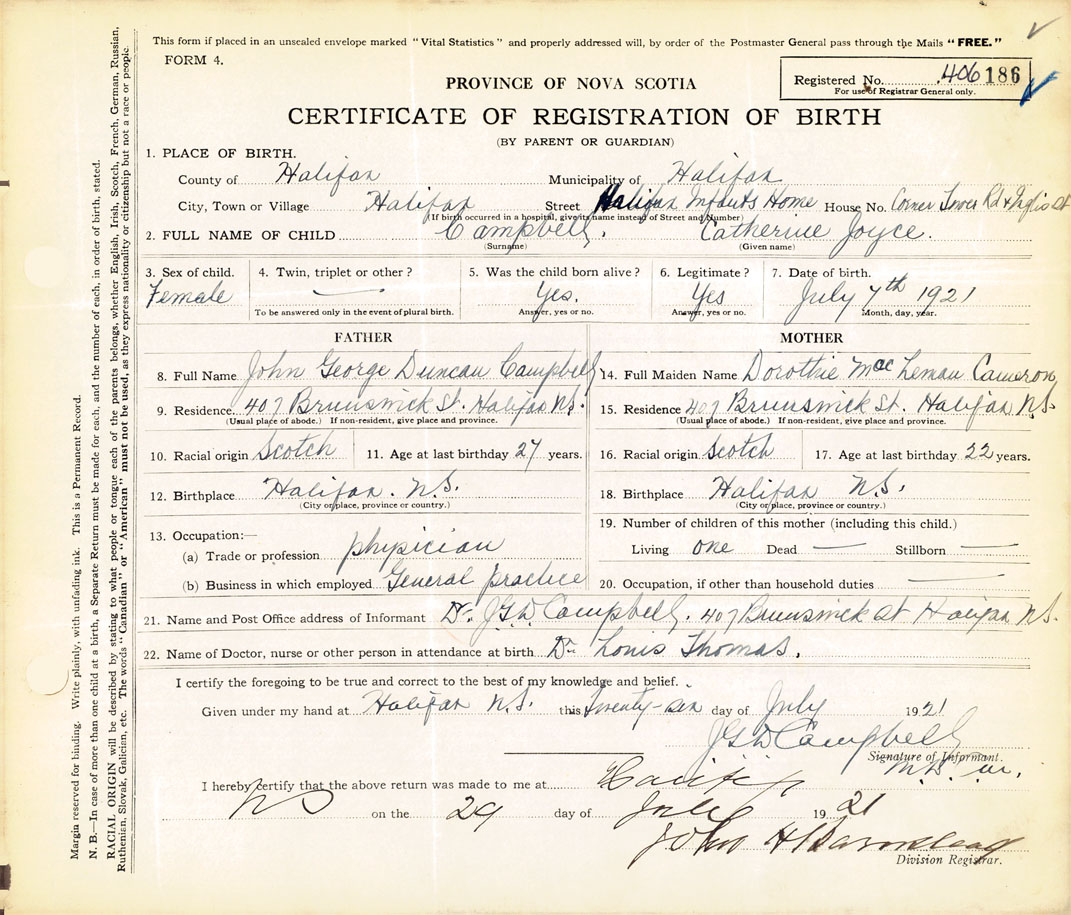 This form if placed in an unsealed envelope marked "Vital Statistics" and properly addressed will, by order of the Postmaster General pass through the Mails "FREE."
FORM 4.
Registered No. 406186
For use of Registrar General only.
PROVINCE OF NOVA SCOTIA
CERTIFICATE OF REGISTRATION OF BIRTH
(BY PARENT OR GUARDIAN)
1. PLACE OF BIRTH.
County of Halifax Municipality of Halifax
City, Town or Village Halifax Street Halifax Infants Home House No. Corner Tower Rd & Inglis St
(If birth occurred in a hospital, give its name instead of Street and Number)
2. FULL NAME OF CHILD Campbell, Catherine Joyce.
(Surname) (Given name)
3. Sex of child. 4. Twin, triplet or other? 5. Was the child born alive? 6. Legitimate? 7. Date of birth.
Female — Yes. Yes July 7th 1921
To be answered only in the event of plural birth. Answer, yes or no. Answer, yes or no. Month, day, year.
FATHER
8. Full Name John George Duncan Campbell
9. Residence 407 Brunswick St. Halifax N.S.
(Usual place of abode.) If non-resident, give place and province.
10. Racial origin Scotch 11. Age at last birthday 27 years.
12. Birthplace Halifax. N.S.
(City or place, province or country.)
13. Occupation:—
(a) Trade or profession physician
(b) Business in which employed General practice
MOTHER
14. Full Maiden Name Dorothie MacLennan Cameron
15. Residence 407 Brunswick St. Halifax N.S.
(Usual place of abode.) If non-resident, give place and province.
16. Racial origin Scotch 17. Age at last birthday 22 years.
18. Birthplace Halifax N.S.
(City or place, province or country.)
19. Number of children of this mother (including this child.)
Living one Dead — Stillborn —
20. Occupation, if other than household duties —
21. Name and Post Office address of Informant Dr. JGD Campbell. 407 Brunswick St Halifax N.S.
22. Name of Doctor, nurse or other person in attendance at birth Dr Louis Thomas.
I certify the foregoing to be true and correct to the best of my knowledge and belief.
Given under my hand at Halifax N.S. this Twenty-six day of July 1921
JGD Campbell
Signature of Informant.
I hereby certify that the above return was made to me at Halifax
NS on the 29 day of July 1921
John H Barnstead
Division Registrar.
Margin reserved for binding. Write plainly, with unfading ink. This is a Permanent Record.
N. B.—In case of more than one child at a birth, a Separate Return must be made for each, and the number of each, in order of birth, stated.
RACIAL ORIGIN will be described by stating to what people or tongue each of the parents belongs, whether English, Irish, Scotch, French, German, Russian,
Ruthenian, Slovak, Galician, etc. The words "Canadian" or "American" must not be used, as they express nationality or citizenship but not a race or people.